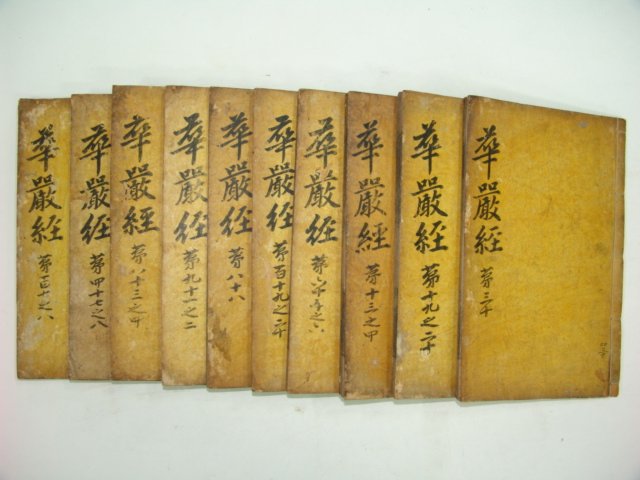 華嚴經
第三十
華嚴經
第十九之二十
華嚴經
第十三之
華嚴經
之六
華嚴經
第百十九之二十
華嚴經
第八十八
華嚴經
第九十一之二
華嚴經
第八十三之
華嚴經
第四十七之八
華嚴經
第百十之八